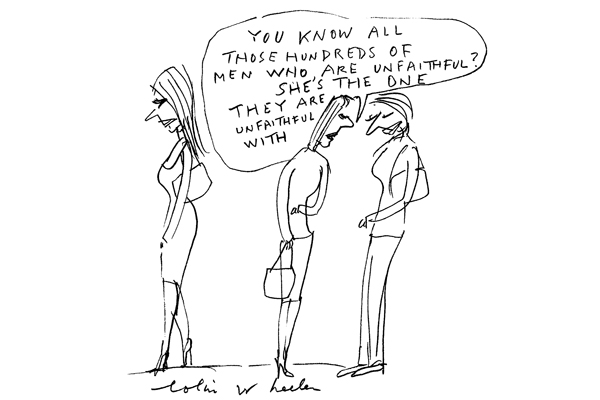 YOU KNOW ALL
THOSE HUNDREDS OF
MEN WHO ARE UNFAITHFUL?
SHE'S THE ONE
THEY ARE
UNFAITHFUL
WITH
Colin Wheeler